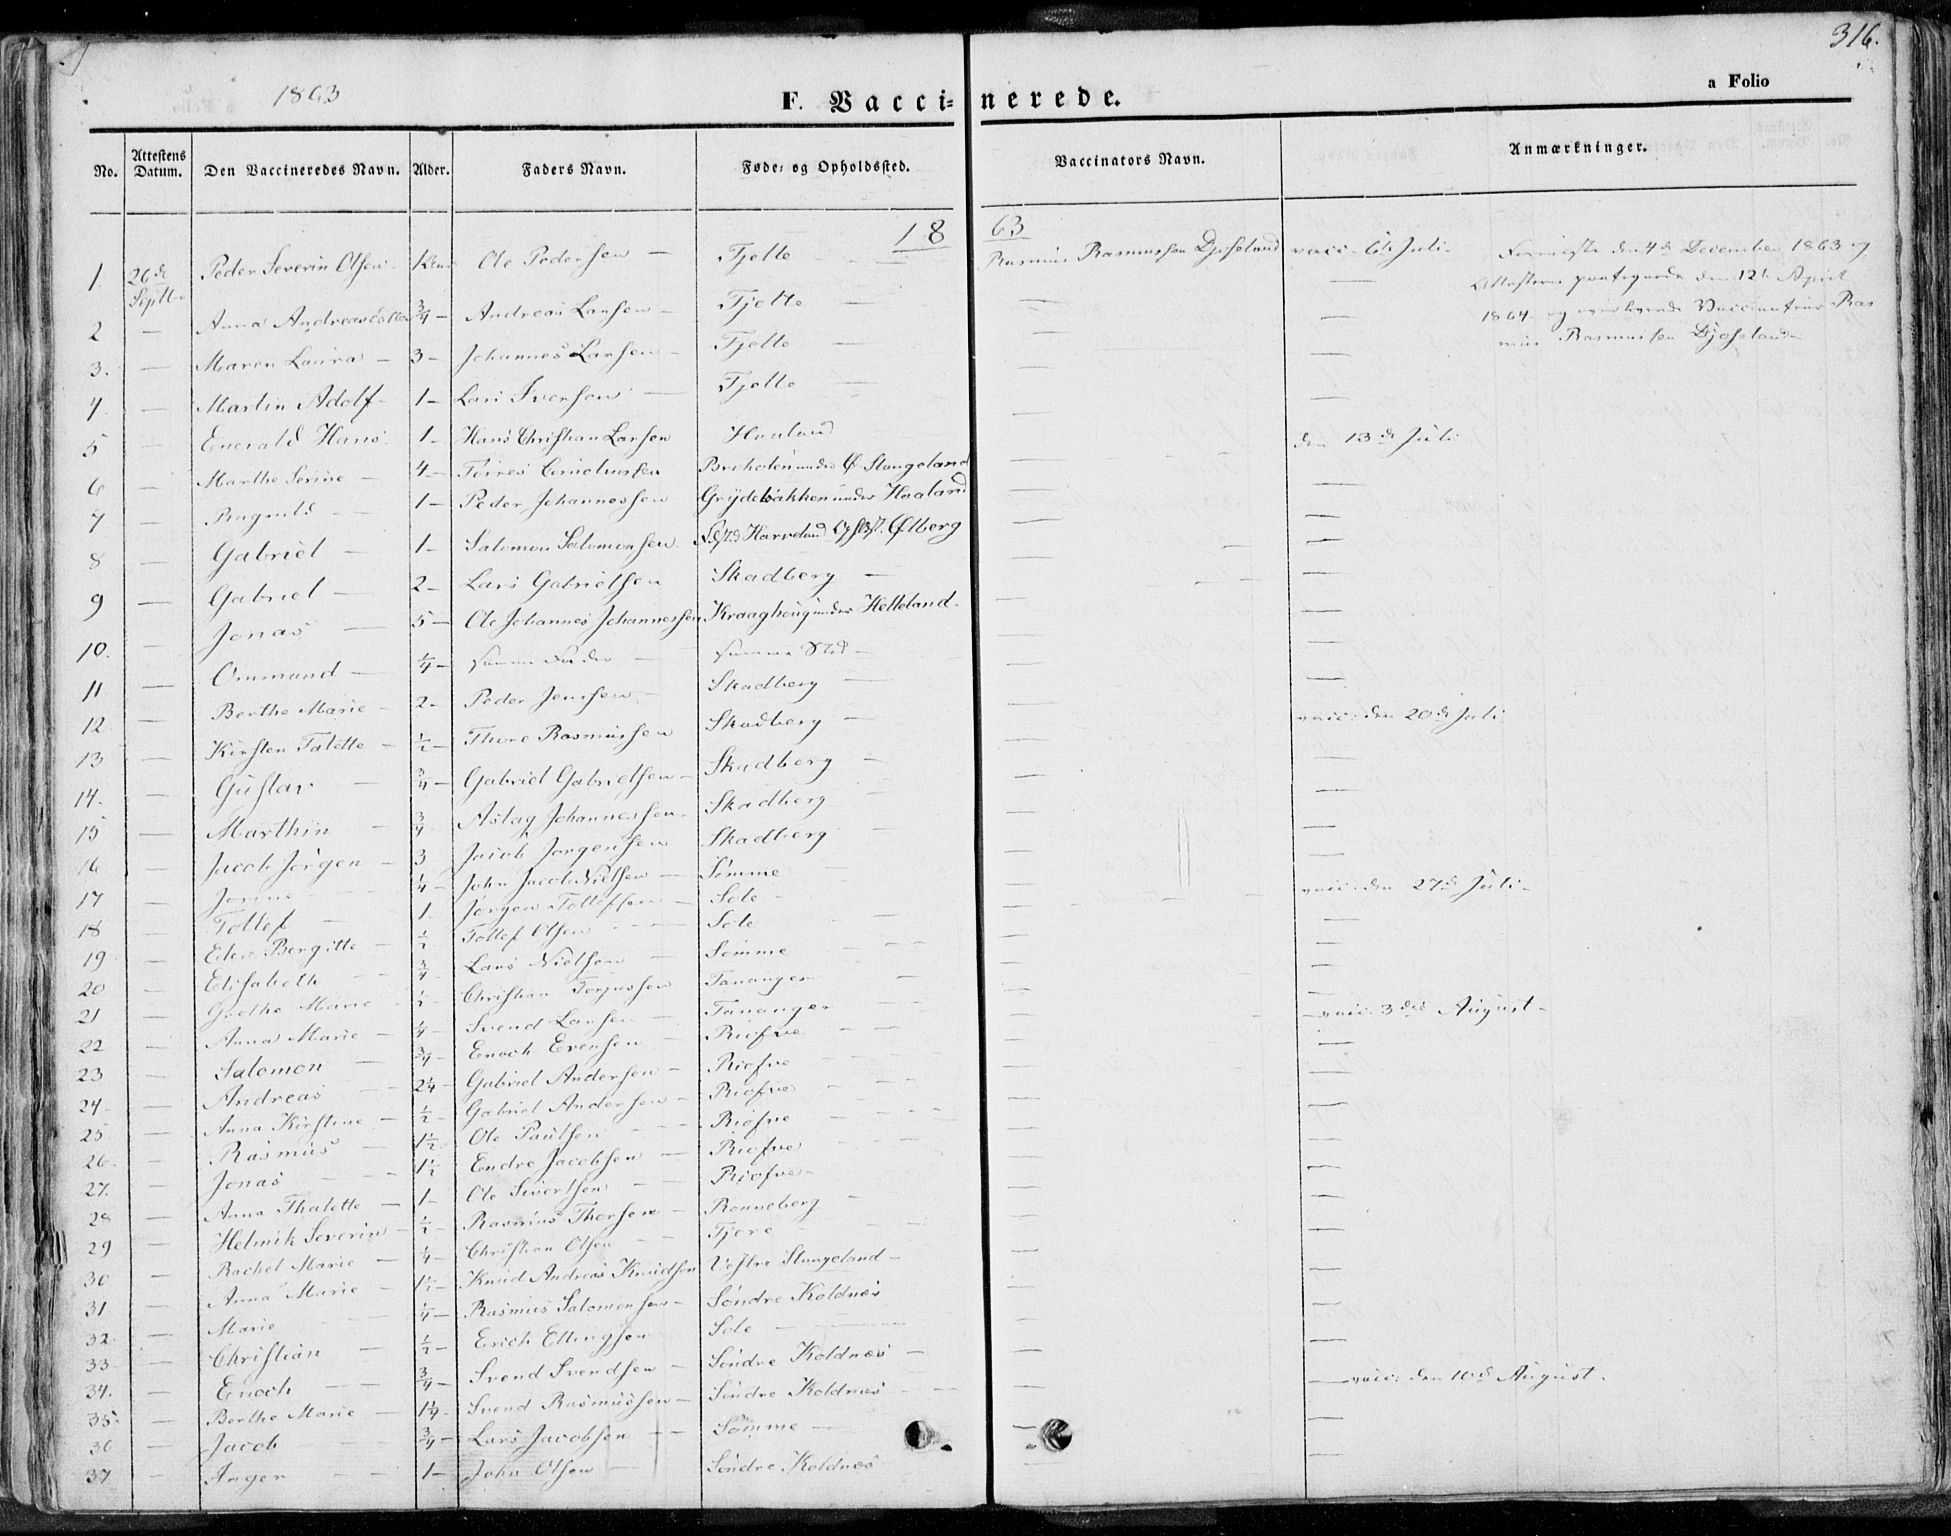 316.
1863
F. Vacci-nerede.
a Folio
No. Attestens Datum. Den Vaccineredes Navn. Alder. Faders Navn. Føde- og Opholdssted. Vaccinators Navn. Anmærkninger.
1863
1. 26de Septb. Peder Severin Olsen Ole Pedersen — Tjelte Rasmus Rasmussen vacc. 6te Juli den 4de December 1863 og
2 — Anna 3/4 — Andreas Larsen — Tjelte — — Attesten den 12te April
3. — Maren Laura — 3 — Johannes Larsen — Tjelte — — 1864 og
4 — Martin Adolf — 1 — Lars Iversen — Tjelte — — Rasmussen
5 — Enevald Hans 1 — Hans Christian Larsen Haaland — den 13de Juli
6 — Marthe Serine — 4 — Tørres under Ø Stangeland — —
7 — Ragnild — 1 — Peder Johannessen Grydebakken under Haaland — —
8 — Gabriel — 1 — Salomon Salomonsen Harveland Ølberg — —
9 — Gabriel — 2 — Lars Gabrielsen Skadberg — — —
10. — Jonas — 5 — Ole Johannes Johannessen Kraaghoug under Helleland — — —
11 — Ommund — 1/4 — samme Fader — samme Sted — — —
12. — Berthe Marie — 2 — Peder Jensen — Skadberg — — vacc. den 20de Juli
13 — Kirsten Talette — 1/2 — Thore Rasmussen Skadberg — — —
14. — Gustav — 3/4 — Gabriel Gabrielsen — Skadberg — — —
15 — Marthin — 3/4 Aslag Johannessen Skadberg — — —
16 — Jacob Jørgen — 3 Jacob Jørgensen Skadberg — — —
17 — Jorine — 1/4 — John Jacob Nielsen — Sømme — vacc. den 27de Juli —
18 — Tollef — 1 Jørgen Tollefsen — Sole — — —
19 — Bergitte — 1/2 Tollef Olsen — Sole — — —
20 — Elisabeth 3/4 Lars Nielsen — Sømme — — —
21 — Grethe Marie 1/2 Christian Torjussen Tananger — — —
22 — Anna Marie — 1/4 — Svend Larsen — Tananger — — vacc. 3die August —
23 — Salomon — 3/4 — Enoch Evensen — Riofve — — —
24 — Andreas 2 1/4 — Gabriel Andersen — Riofve — — —
25 — Anna Kirstine — 1/2 — Gabriel Andersen — Riofve — — —
26 — Rasmus — 1 1/2 Ole Paulsen — Riofve — — —
27. — Jonas — 1 1/2 Endre Jacobsen — Riofve — — —
28 — Anna Thalette — 1 — Ole Sivertsen — Riofve — — —
29 — Helmik Severin — 1/2 — Rasmus Thorsen — Ronneberg — — —
30 — Rachel Marie — 1/4 — Christian Olsen — Tjore — — —
31 — Anna Marie — 1 1/2 — Knud Andreas Knudsen Vestre Stangeland — — —
32 — Marie — 1/4 — Rasmus Salomonsen — Søndre Koldnes — —
33 — Christian — 1/2 — Erich Ellingsen Sole — — —
34. — Enoch — 3/4 — Svend Svendsen — Søndre Koldnes — — vacc. den 10de August.
35 — Berthe Marie — 1 1/4 — Svend Rasmussen — Søndre Koldnes — — —
36 — Jacob 3/4 — Lars Jacobsen — Sømme — — —
37 — Anger — 1 — John Olsen — Søndre Koldnes — —